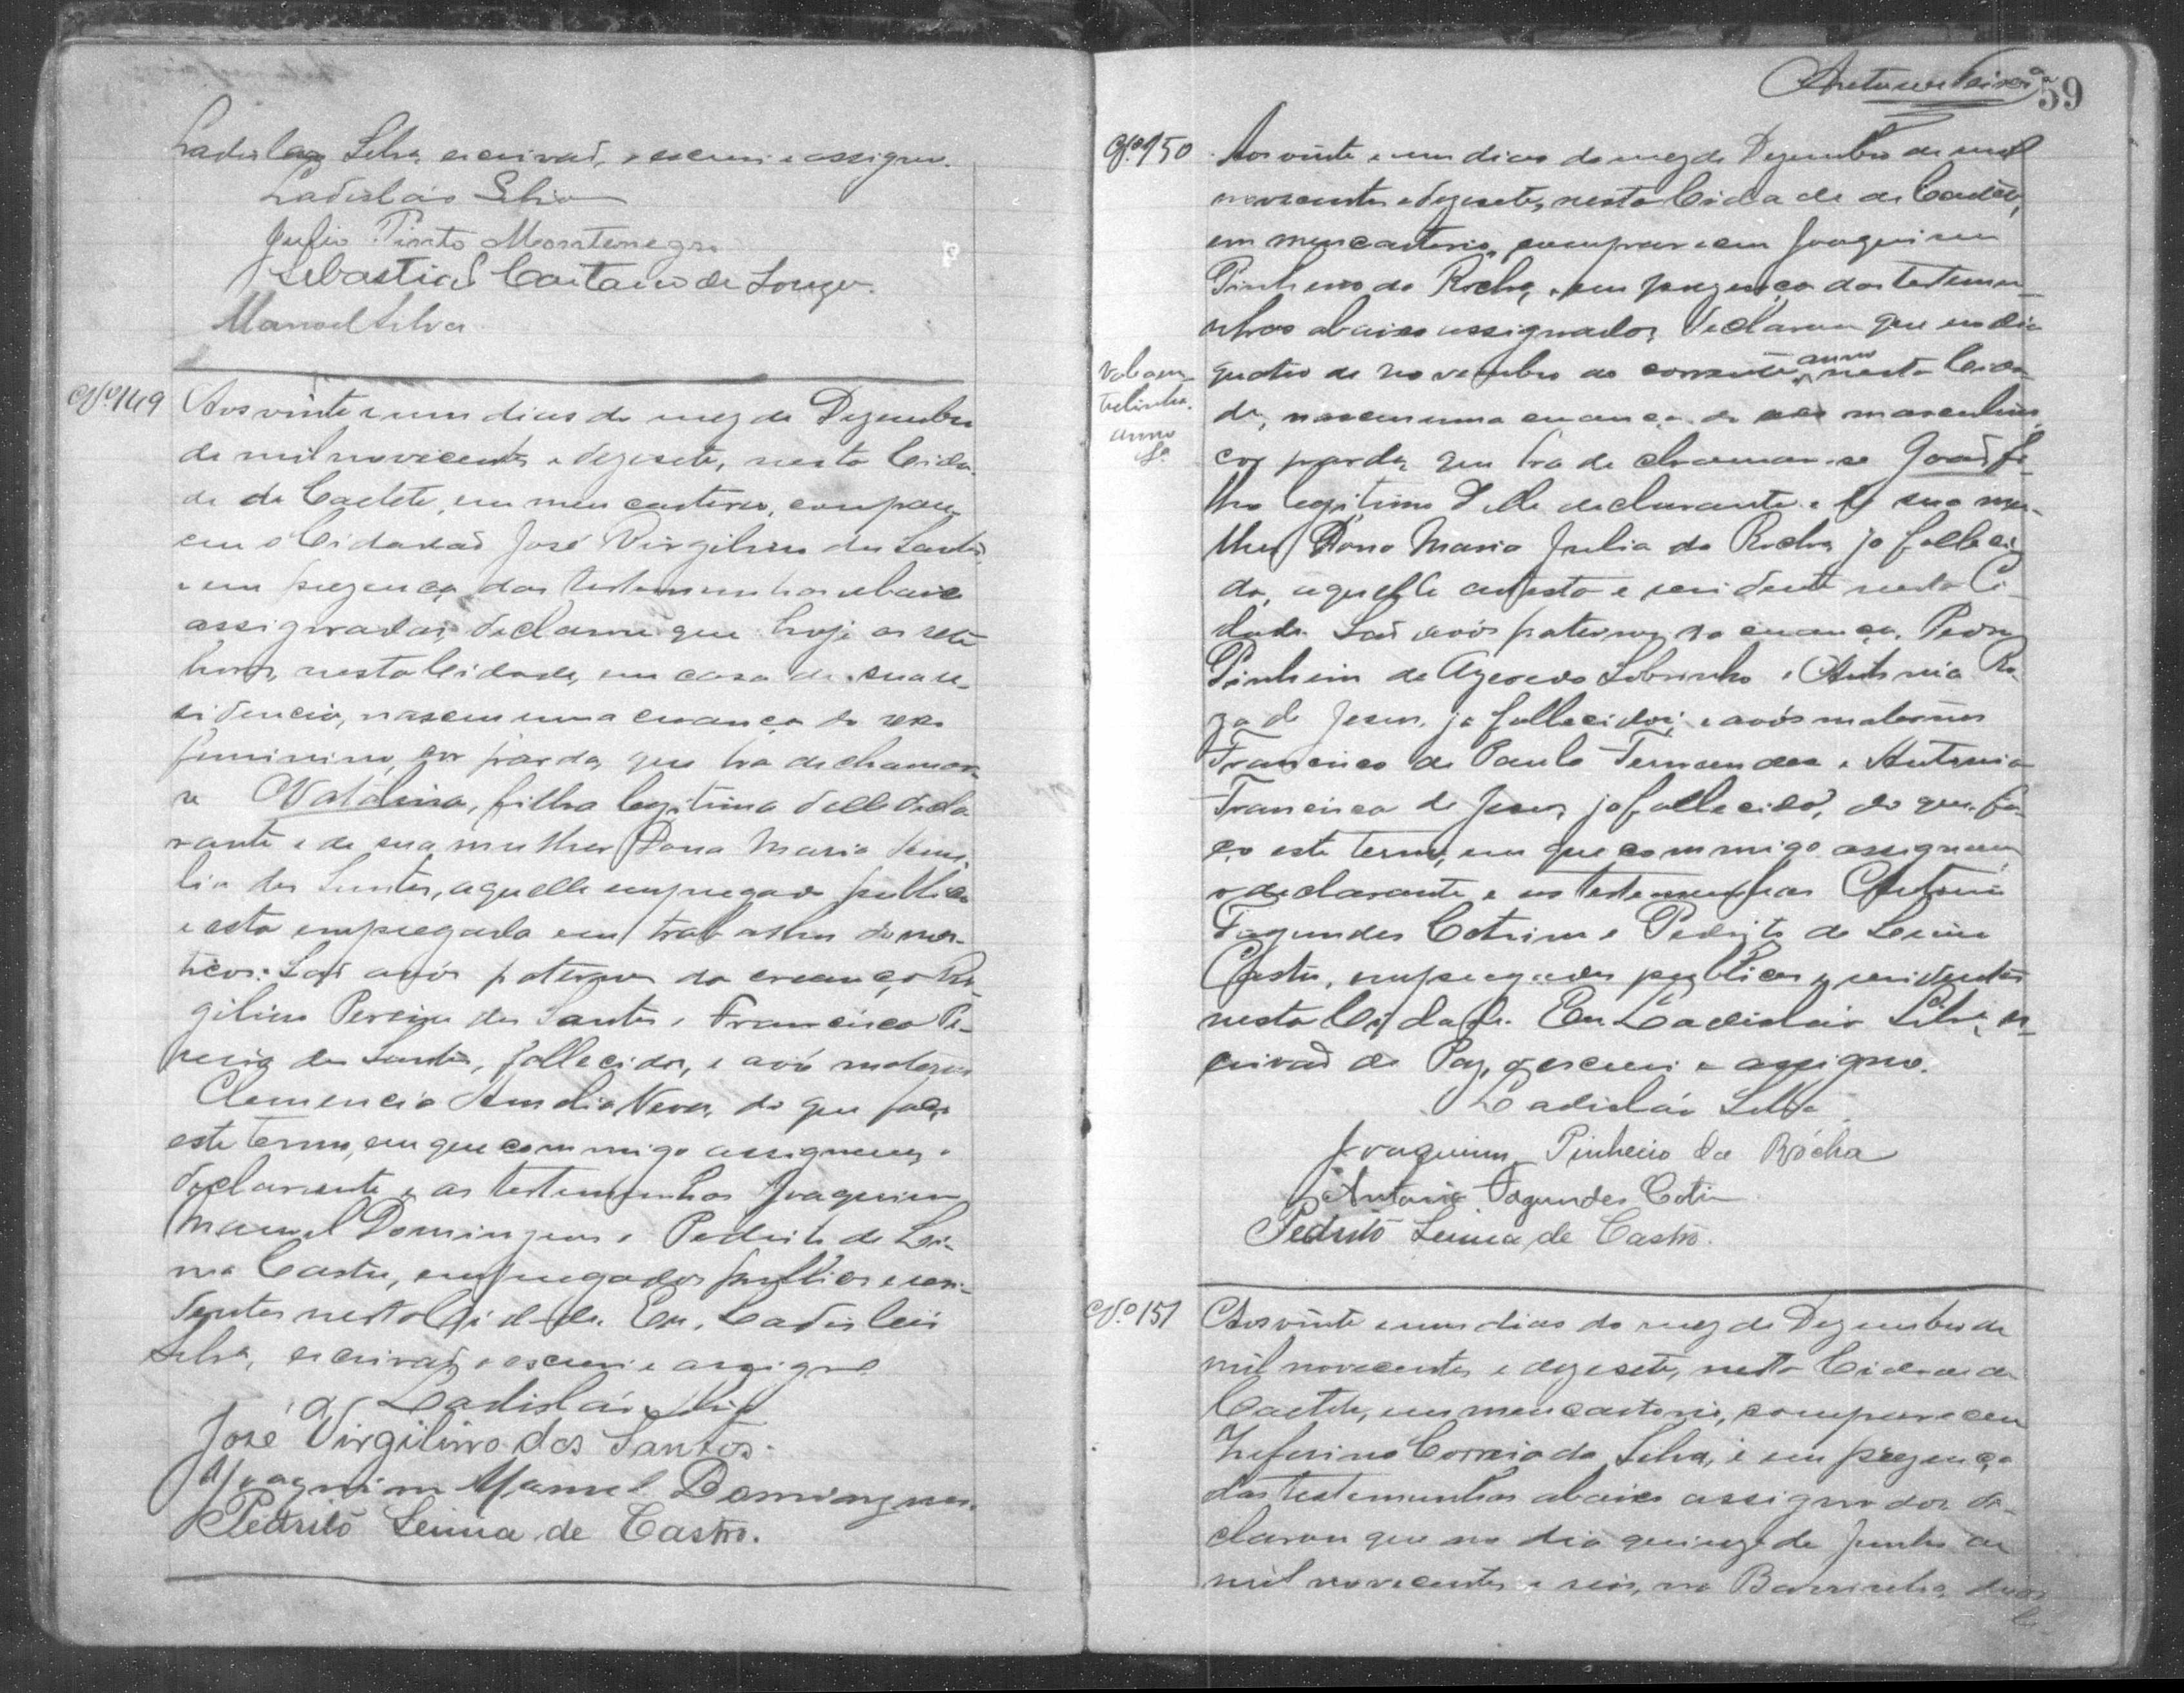 Ladislao Silva, escrivad, o escrevi e assigno.
Ladisláo Silva
Julio Pinto Montenegro
Sebastiaõ Caetano de Souza.
Manoel Silva
Nº 149 Aos vinte e um dias do mez de Dezembro
de mil novecentos e dezesete, nesta Cida-
de de Caeteté, em meu cartorio, compare-
ceu o Cidadaõ José Virgilino dos Santos
e em prezença das testemunhas abaixo
assignadas, declarou que hoje as sete
horas, nesta Cidade, em casa de sua re-
sidencia, nasceu uma creança do sexo
feminino, cor parda, que ha de chamar-
se, filha legitima delle decla-
rante e de sua mulher Dona Maria
dos Santos, aquelle empregado publico
e esta empregada em trabalhos domes-
ticos. Saõ avós paternos da creança Vir-
gilino Pereira dos Santos e Francisca Pe-
reira dos Santos, fallecidos, e avó materna
Clemencia Amelia Neves, do que faço
este termo, em que commigo assignam o
declarante e as testemunhas Joaquim
Manoel Domingues e Pedrito de Lei-
ma Castro, empregados publicos e resi-
dentes nesta Cidade. Eu, Ladisláo
Silva, escrivaõ o escrevi e assigno
Ladisláo Silva
José Virgilino dos Santos.
Joaquim Manoel Domingues.
Pedritó Leima de Castro.
59
Nº 150 Aos vinte e um dias do mez de Dezembro de mil
novecentos e dezesete, nesta Cidade de Caeteté,
em meu cartorio, compareceu Joaquim
Pinheiro da Rocha, e em prezença das testemu-
nhas abaixo assignadas, declarou que no dia
quatro de novembro do corrente anno nesta Cida-
de, nasceu uma creança do sexo masculino
cor parda, que ha de chamar-se Joaõ fi-
lho legitimo delle declarante e de sua mu-
lher Dona Maria Julia da Rocha ja falleci-
da, aquelle artista e residente nesta Ci-
dade. Saõ avós paternos da creança, Pedro
Pinheiro de Azevedo Sobrinho e Antonia Ro-
za de Jesus, ja fallecidos; e avós maternos
Francisco de Paula Fernandes e Antonia
Francisca de Jesus, ja fallecidos, do que fa-
ço este termo, em que commigo assignam
o declarante e as testemunhas Antonio
Fagundes Cotrim e Pedrito de Leima
Castro, empregados publicos e residentes
nesta Cidade. Eu Ladisláo Silva, es-
crivaõ de Paz, o escrevi e assigno.
Ladisláo Silva
Joaquim Pinheiro da Rocha
Antonio Fagundes Cotrim
Pedritó Leima de Castro.
Vale a en-
trelinha.
anno
Sª
Nº 151 Aos vinte e um dias do mez de Dezembro de
mil novecentos e dezesete, nesta Cidade de
Caeteté, em meu cartorio, compareceu
Zeferino Correia da Silva, e em prezença
das testemunhas abaixo assignadas de-
clarou que no dia quinze de Junho de
mil novecentos e seis, na Barrinha,